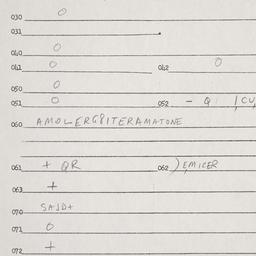 030 0
031
040 0
041 0 042 0
050 0
051 0 052 - Q
060 AMOLERG8ITERAMATONE
061 + QR 062 ) EMICER
063 +
070 SAJD+
071 0
072 +